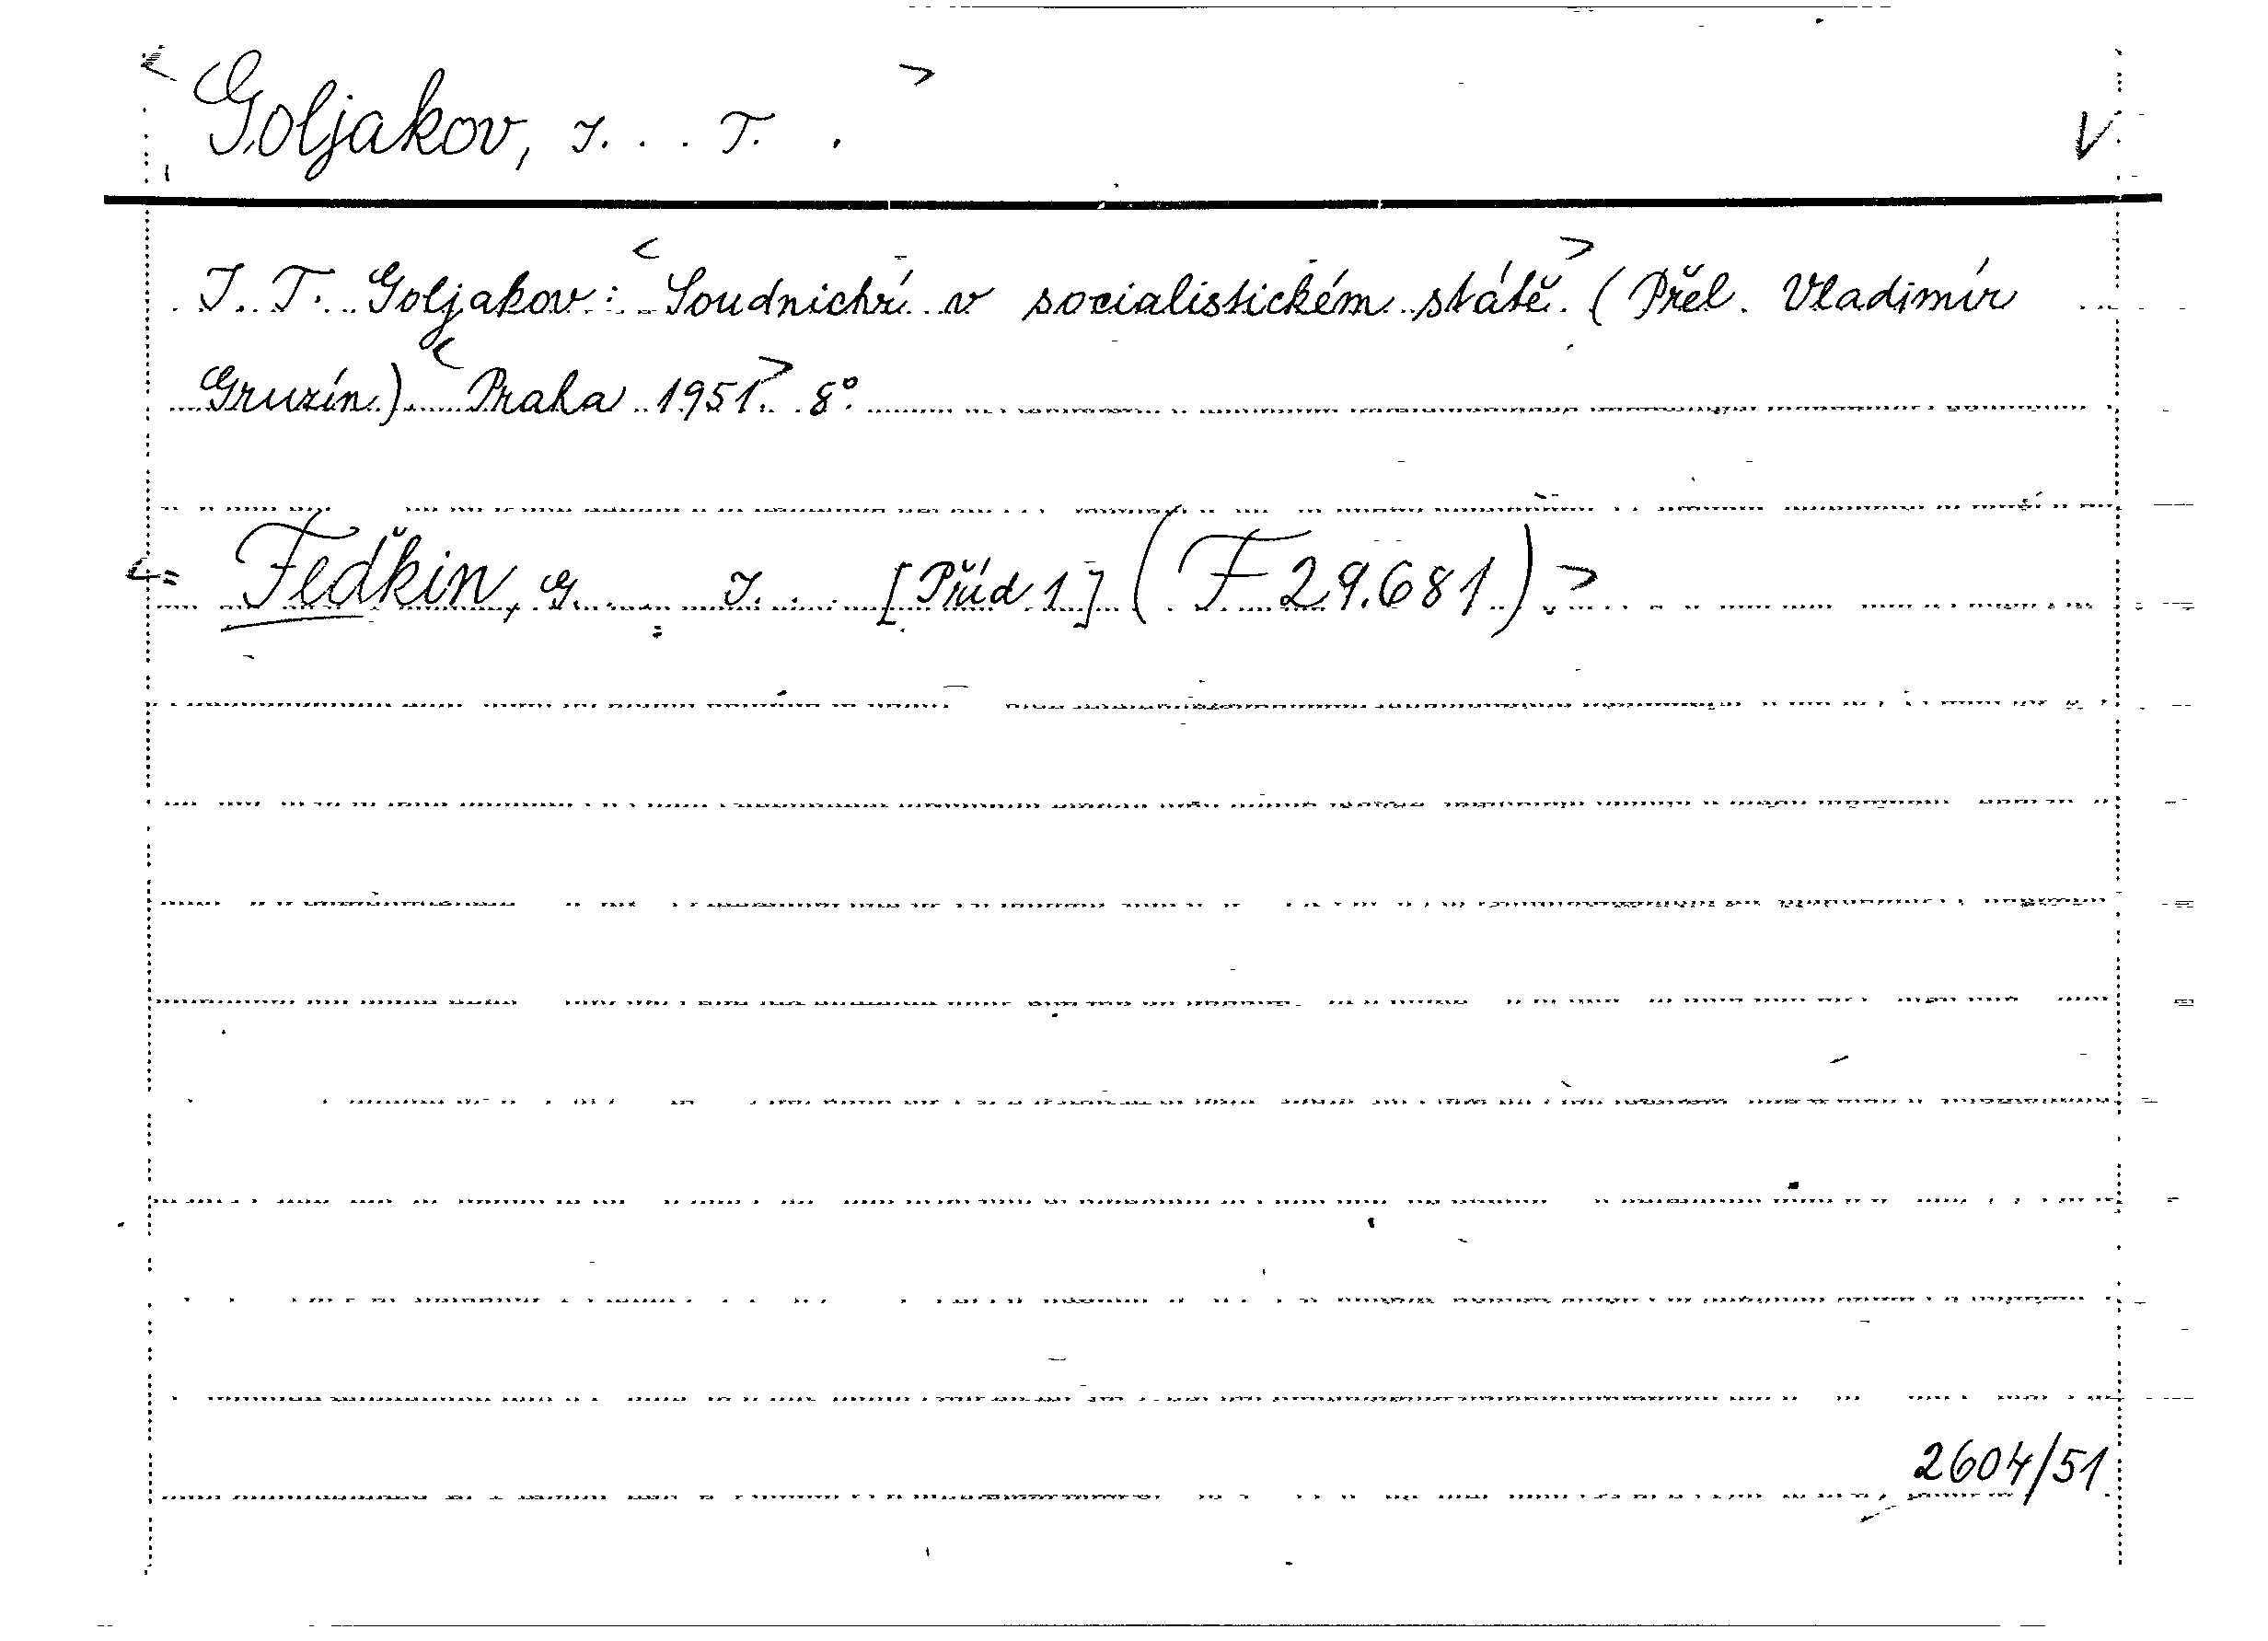 < Goljakov, I. . . T. . > V.
I. T. Goljakov: <Soudnictví v socialistickém státě.> (Přel. Vladimír
Gruzín) <Praha 1951.> 8°.
<= Feďkin, G. I. [Příd 1] (F 29.681) >
2604/51